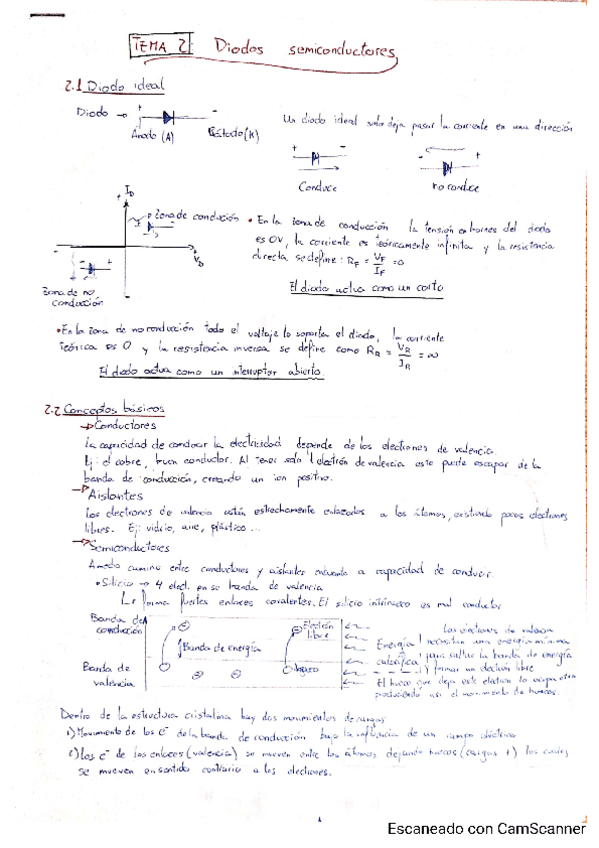 TEMA 2: Diodos semiconductores
2.1 Diodo ideal
Diodo → + -
Ánodo (A) Cátodo (K)
Un diodo ideal solo deja pasar la corriente en una dirección
+ - - +
Conduce no conduce
I_D
Zona de conducción
V_D
Zona de no conducción
• En la zona de conducción la tensión en bornes del diodo
es 0V, la corriente es teóricamente infinita y la resistencia
directa se define: R_F = V_F / I_F = 0
El diodo actua como un corto
• En la zona de no conducción todo el voltaje lo soporta el diodo, la corriente
teórica es 0 y la resistencia inversa se define como R_R = V_R / I_R = ∞
El diodo actua como un interruptor abierto.
2.2 Conceptos básicos
→ Conductores
La capacidad de conducir la electricidad depende de los electrones de valencia.
Ej: el cobre, buen conductor. Al tener solo 1 electrón de valencia este puede escapar de la
banda de conducción, creando un ion positivo.
→ Aislantes
Los electrones de valencia están estrechamente enlazados a los átomos, existiendo pocos electrones
libres. Ej: vidrio, aire, plástico...
→ Semiconductores
A medio camino entre conductores y aislantes a capacidad de conducir.
• Silicio → 4 elect. en su banda de valencia
Forma fuertes enlaces covalentes. El silicio intrínseco es mal conductor
Banda de conducción
Electrón libre
Banda de energía
Banda de valencia
Hueco
Energía calorífica
Los electrones de valencia
necesitan una energía mínima
para saltar la banda de energía
y formar un electrón libre
El hueco que deja este electrón lo ocupa otro
produciendo así el movimiento de huecos.
Dentro de la estructura cristalina hay dos movimientos de cargas
1) Movimiento de los e⁻ de la banda de conducción bajo la influencia de un campo eléctrico
2) Los e⁻ de los enlaces (valencia) se mueven entre los átomos dejando huecos (cargas +) los cuales
se mueven en sentido contrario a los electrones.
1
Escaneado con CamScanner